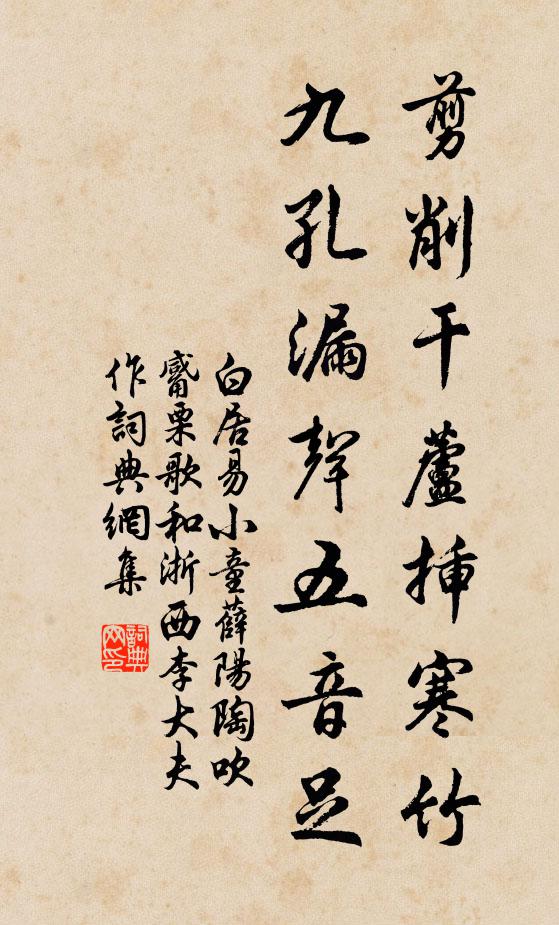 剪削干蘆揷寒竹
九孔漏聲五音足
白居易小童薛陽陶吹
觱栗歌和浙西李大夫
作詞典網集
詞典网印